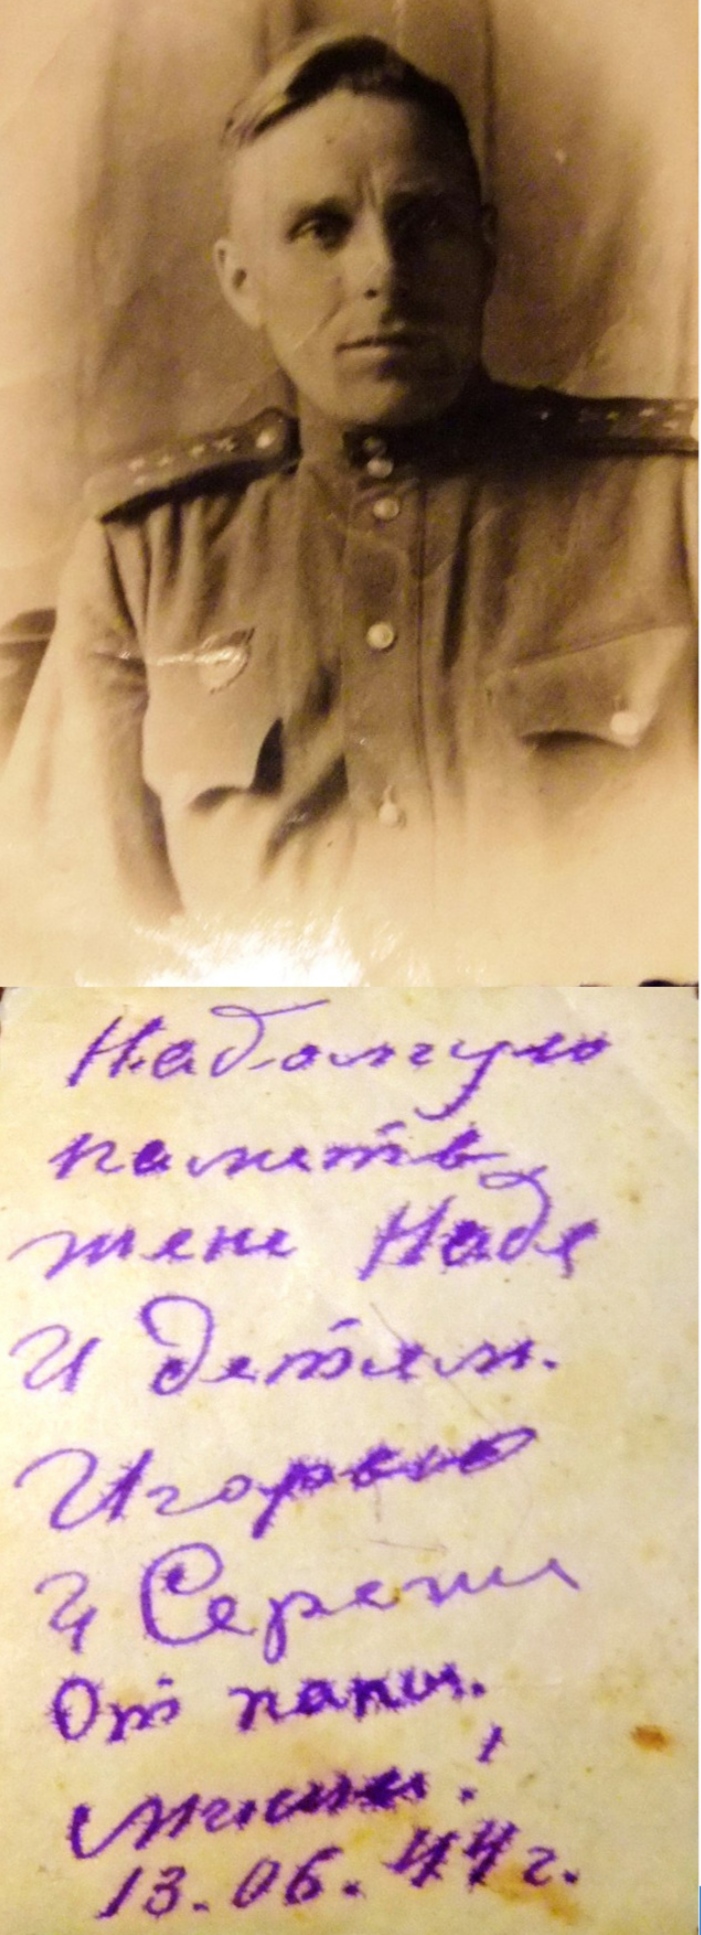 На долгую
память
жене Наде
И детям.
Игорью
и Сережи
От папы.
Миши!
13.06.44г.